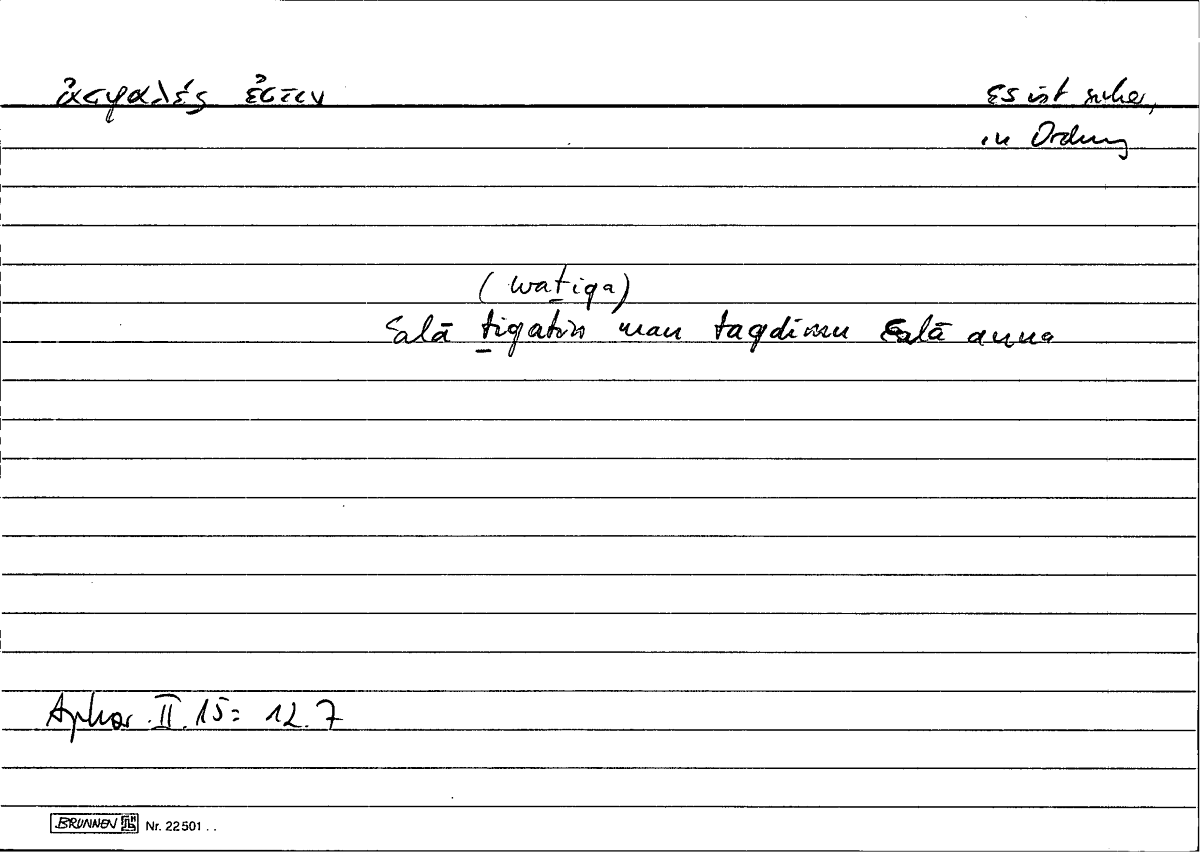 ἀσφαλές ἐστιν
es ist sicher,
in Ordnung
(waṯiqa)
ʿalā ṯiqatin man taqdimu ʿalā anna
Aphor. II. 15 = 12.7
BRUNNEN Nr. 22501 ..